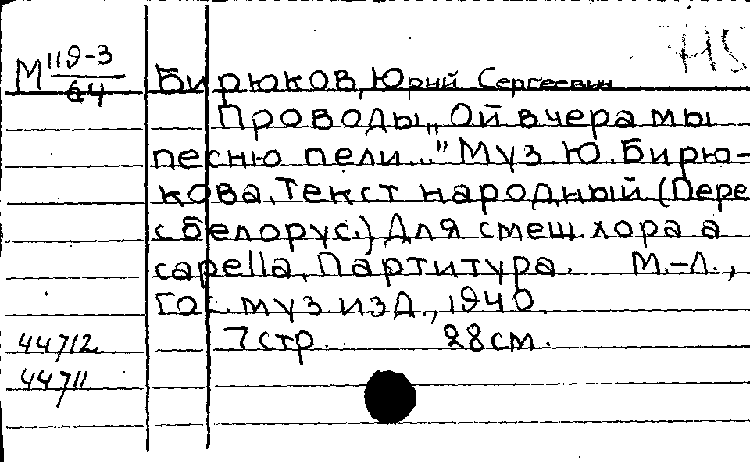 М 119-3/64 Бирюков, Юрий Сергеевич
Проводы „Ой вчера мы
песню пели..." Муз Ю. Бирю-
кова. Текст народный (Пере
с белорус.) Для смеш. хора а
capella. Партитура. М.-Л.,
Гос. муз изд., 1940.
44712 7 стр. 28 см.
44711